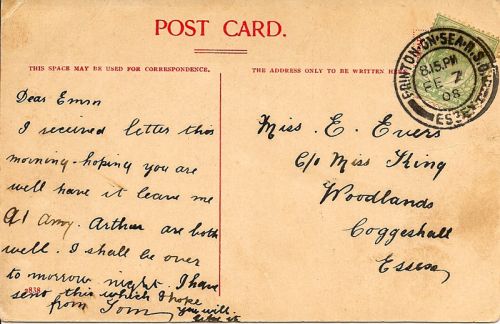 POST CARD.
THIS SPACE MAY BE USED FOR CORRESPONDENCE.
THE ADDRESS ONLY TO BE WRITTEN HERE
FRINTON-ON-SEA R.S.O.
8.15 PM
FE 7
08
ESSEX
Dear Emm
I received letter this
morning - hoping you are
well have it leave me
A1 Amy. Arthur are both
well. I shall be over
to morrow night. I have
send this which I hope
you will
like it
from Tom
2838
Miss. E. Evers
C/o Miss King
Woodlands
Coggeshall
Essex